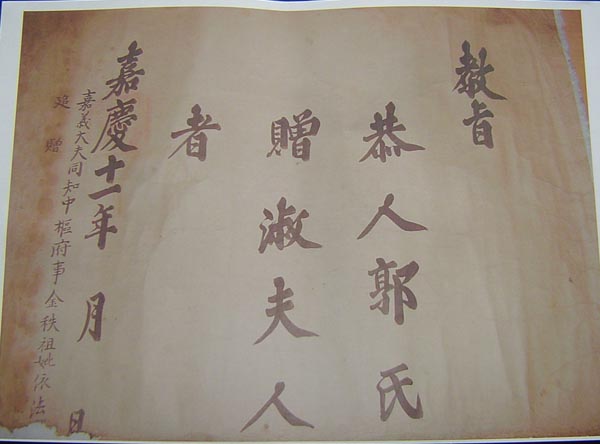 教旨
恭人郭氏
贈淑夫人
者
嘉慶十一年 月 日
嘉義大夫同知中樞府事金秩祖妣依法
追贈